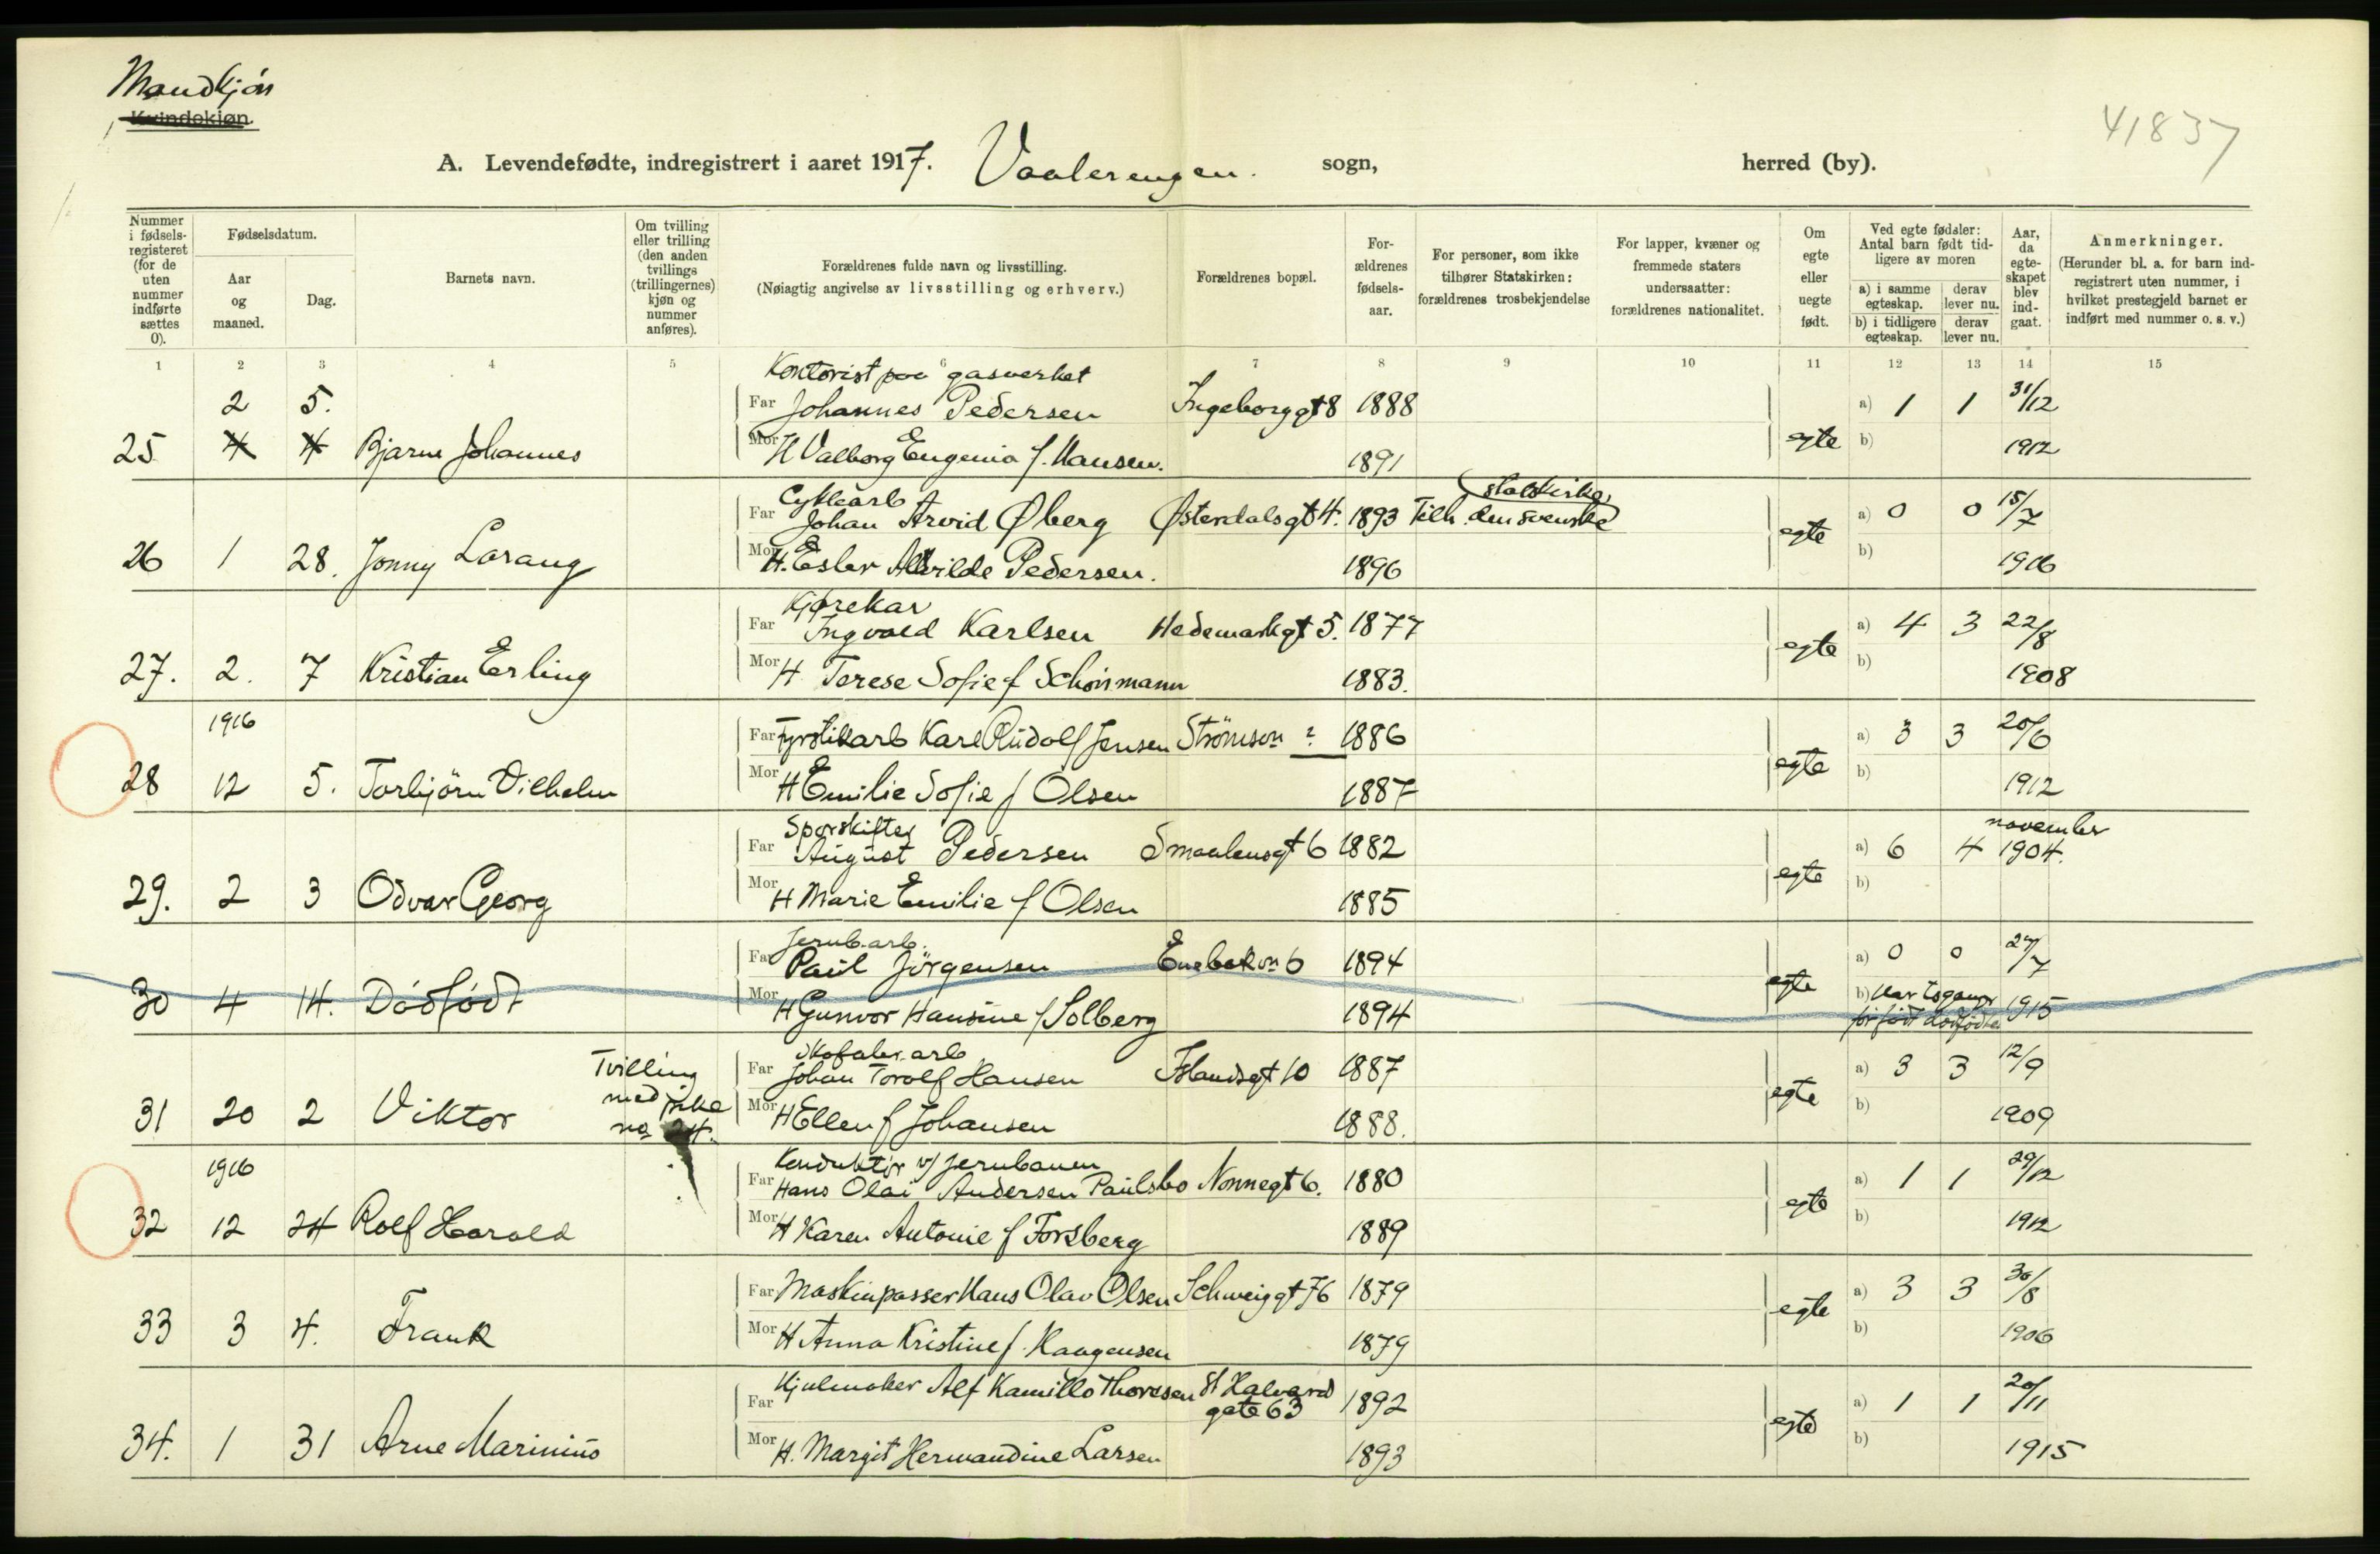 Mandkjøn
Kvindekjøn.
41837
A. Levendefødte, indregistrert i aaret 1917. Vaalerengen. sogn, herred (by).
Nummer i fødselsregisteret (for de uten nummer indførte sættes 0).
Fødselsdatum.
Aar og maaned.
Dag.
Barnets navn.
Om tvilling eller trilling (den anden tvillings (trillingernes) kjøn og nummer anføres).
Forældrenes fulde navn og livsstilling.
(Nøiagtig angivelse av livsstilling og erhverv.)
Forældrenes bopæl.
Forældrenes fødselsaar.
For personer, som ikke tilhører Statskirken: forældrenes trosbekjendelse
For lapper, kvæner og fremmede staters undersaatter: forældrenes nationalitet.
Om egte eller uegte født.
Ved egte fødsler: Antal barn født tidligere av moren
a) i samme egteskap. derav lever nu.
b) i tidligere egteskap. derav lever nu.
Aar, da egteskapet blev indgaat.
Anmerkninger.
(Herunder bl. a. for barn indregistrert uten nummer, i hvilket prestegjeld barnet er indført med nummer o. s. v.)
1 2 3 4 5 6 7 8 9 10 11 12 13 14 15
Kontorist paa gasverket
2 5. Far Johannes Pedersen Ingeborggt 8 1888 a) 1 1 31/12
25 4 4 Bjarne Johannes Mor H Valborg Eugenia f. Hansen. 1891 egte b) 1912
Cyklearb statskirke
Far Johan Arvid Øberg Østerdalsgt 4. 1893 Tilh. den svenske a) 0 0 15/7
26 1 28. Jonny Lorang Mor H. Ester Alvilde Pedersen. 1896 egte b) 1916
Kjørekar
Far Ingvald Karlsen Hedemarkgt 5. 1877 a) 4 3 22/8
27. 2. 7 Kristian Erling Mor H Terese Sofie f Schoismann 1883. egte b) 1908
1916 Far Fyrstikarb Karl Rudolf Jensen Strömsvn ? 1886 a) 3 3 20/6
28 12 5. Torbjörn Vilhelm Mor H Emilie Sofie f Olsen 1887 egte b) 1912
Sporskifter november
Far August Pedersen Smaalensgt 6 1882 a) 6 4 1904.
29. 2 3 Odvar Georg Mor H Marie Emilie f Olsen 1885 egte b)
Jernb.arb.
Far Paul Jörgensen Enebakvn 6 1894 a) 0 0 27/7
30 4 14. Dödfödt Mor H Gunvor Hansine f Solberg 1894 egte b) Har to ganger før født dødfødte 1915
Tvilling Skofabr.arb
Far Johan Torolf Hansen Islandsgt 10 1887 a) 3 3 12/9
31 20 2 Viktor med pike no 24. Mor H Ellen f Johansen 1888. egte b) 1909
Konduktör v/ Jernbanen
1916 Far Hans Olai Andersen Paulsbo Nonnegt 6. 1880 a) 1 1 29/12
32 12 24 Rolf Harald Mor H Karen Antonie f Forsberg 1889 egte b) 1912
Far Maskinpasser Hans Olav Olsen Schweiggt 76 1879 a) 3 3 30/8
33 3 4. Frank Mor H Anna Kristine f. Haagensen 1879 egte b) 1906
Far Hjulmaker Alf Kamillo Thoresen St Halvard gate 63 1892 a) 1 1 20/11
34. 1 31 Arne Marinius Mor H. Margit Hermandine Larsen 1893 egte b) 1915